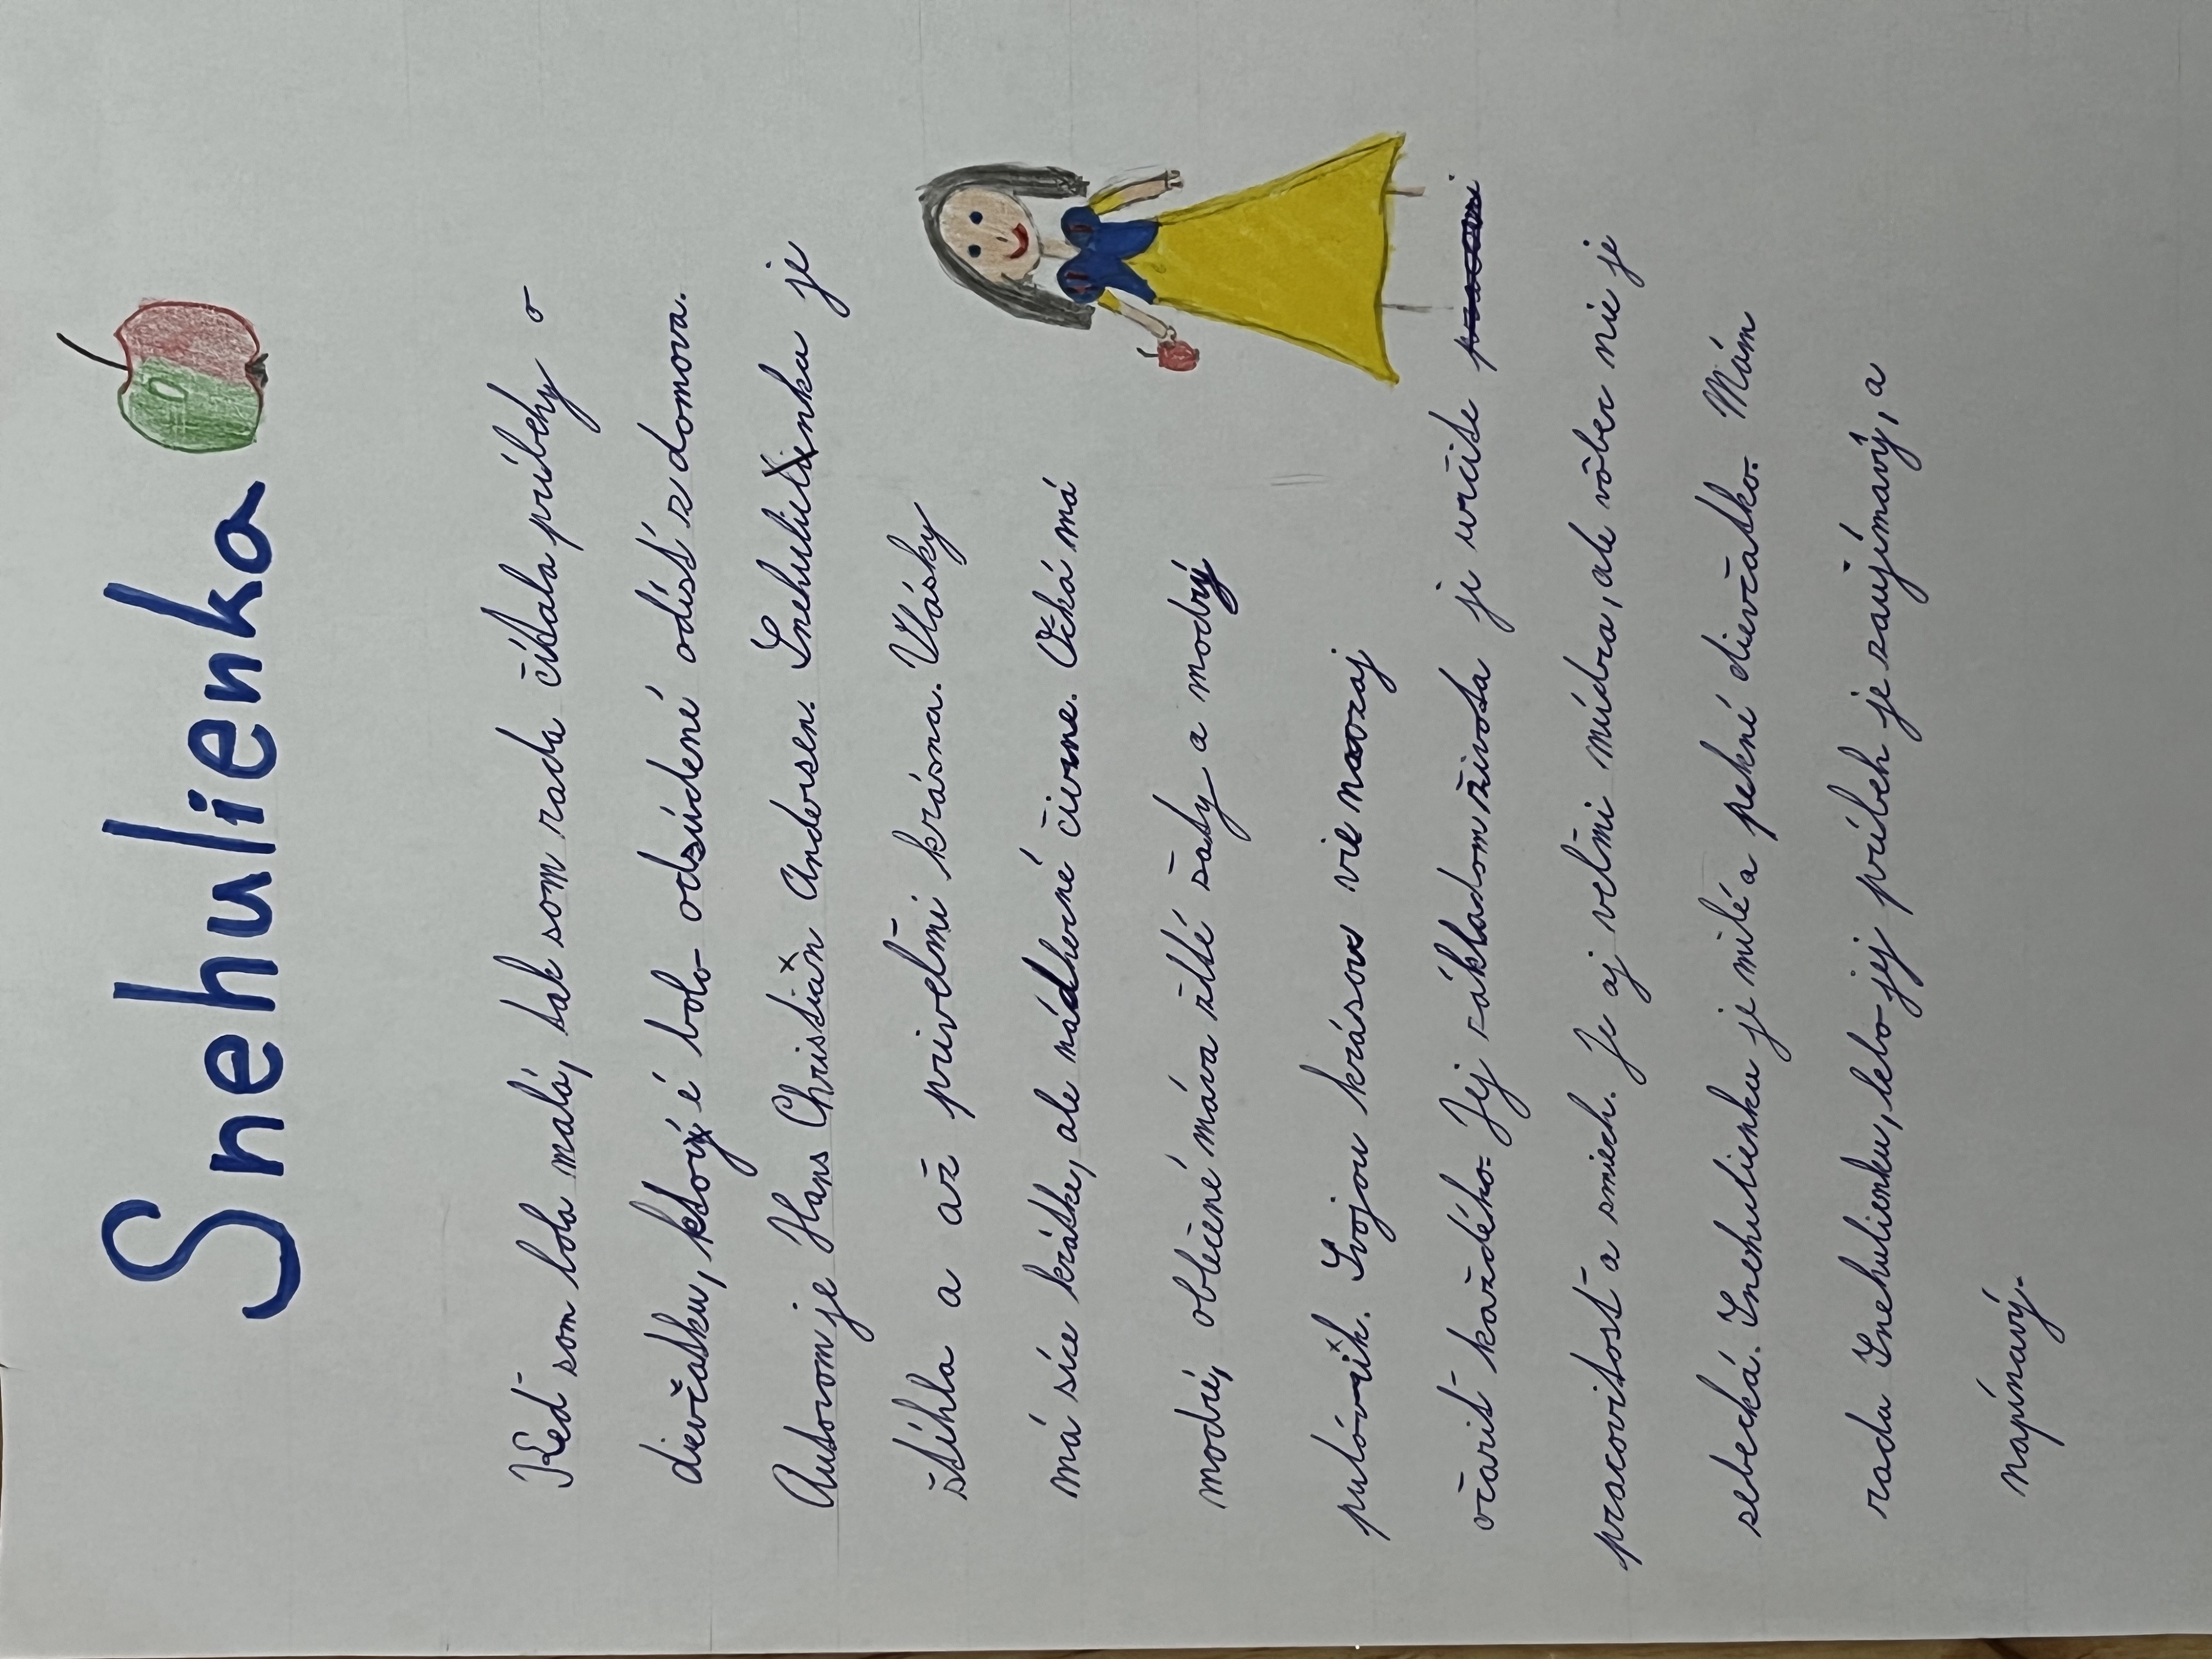 Snehulienka
Keď som bola malá, tak som rada čítala príbehy o
dievčatku, ktoré bolo odsúdené odísť z domova.
Autorom je Hans Christian Andersen. Snehulienka je
štíhla a až priveľmi krásna. Vlásky
má síce krátke, ale nádherné čierne. Očká má
modré, oblečené máva žlté šaty a modrý
pulóvrik. Svojou krásou vie naozaj
očariť každého. Jej základom života je určite
pracovitosť a smiech. Je aj veľmi múdra, ale vôbec nie je
sebecká. Snehulienka je milé a pekné dievčatko. Mám
rada Snehulienku, lebo jej príbeh je zaujímavý, a
napínavý.